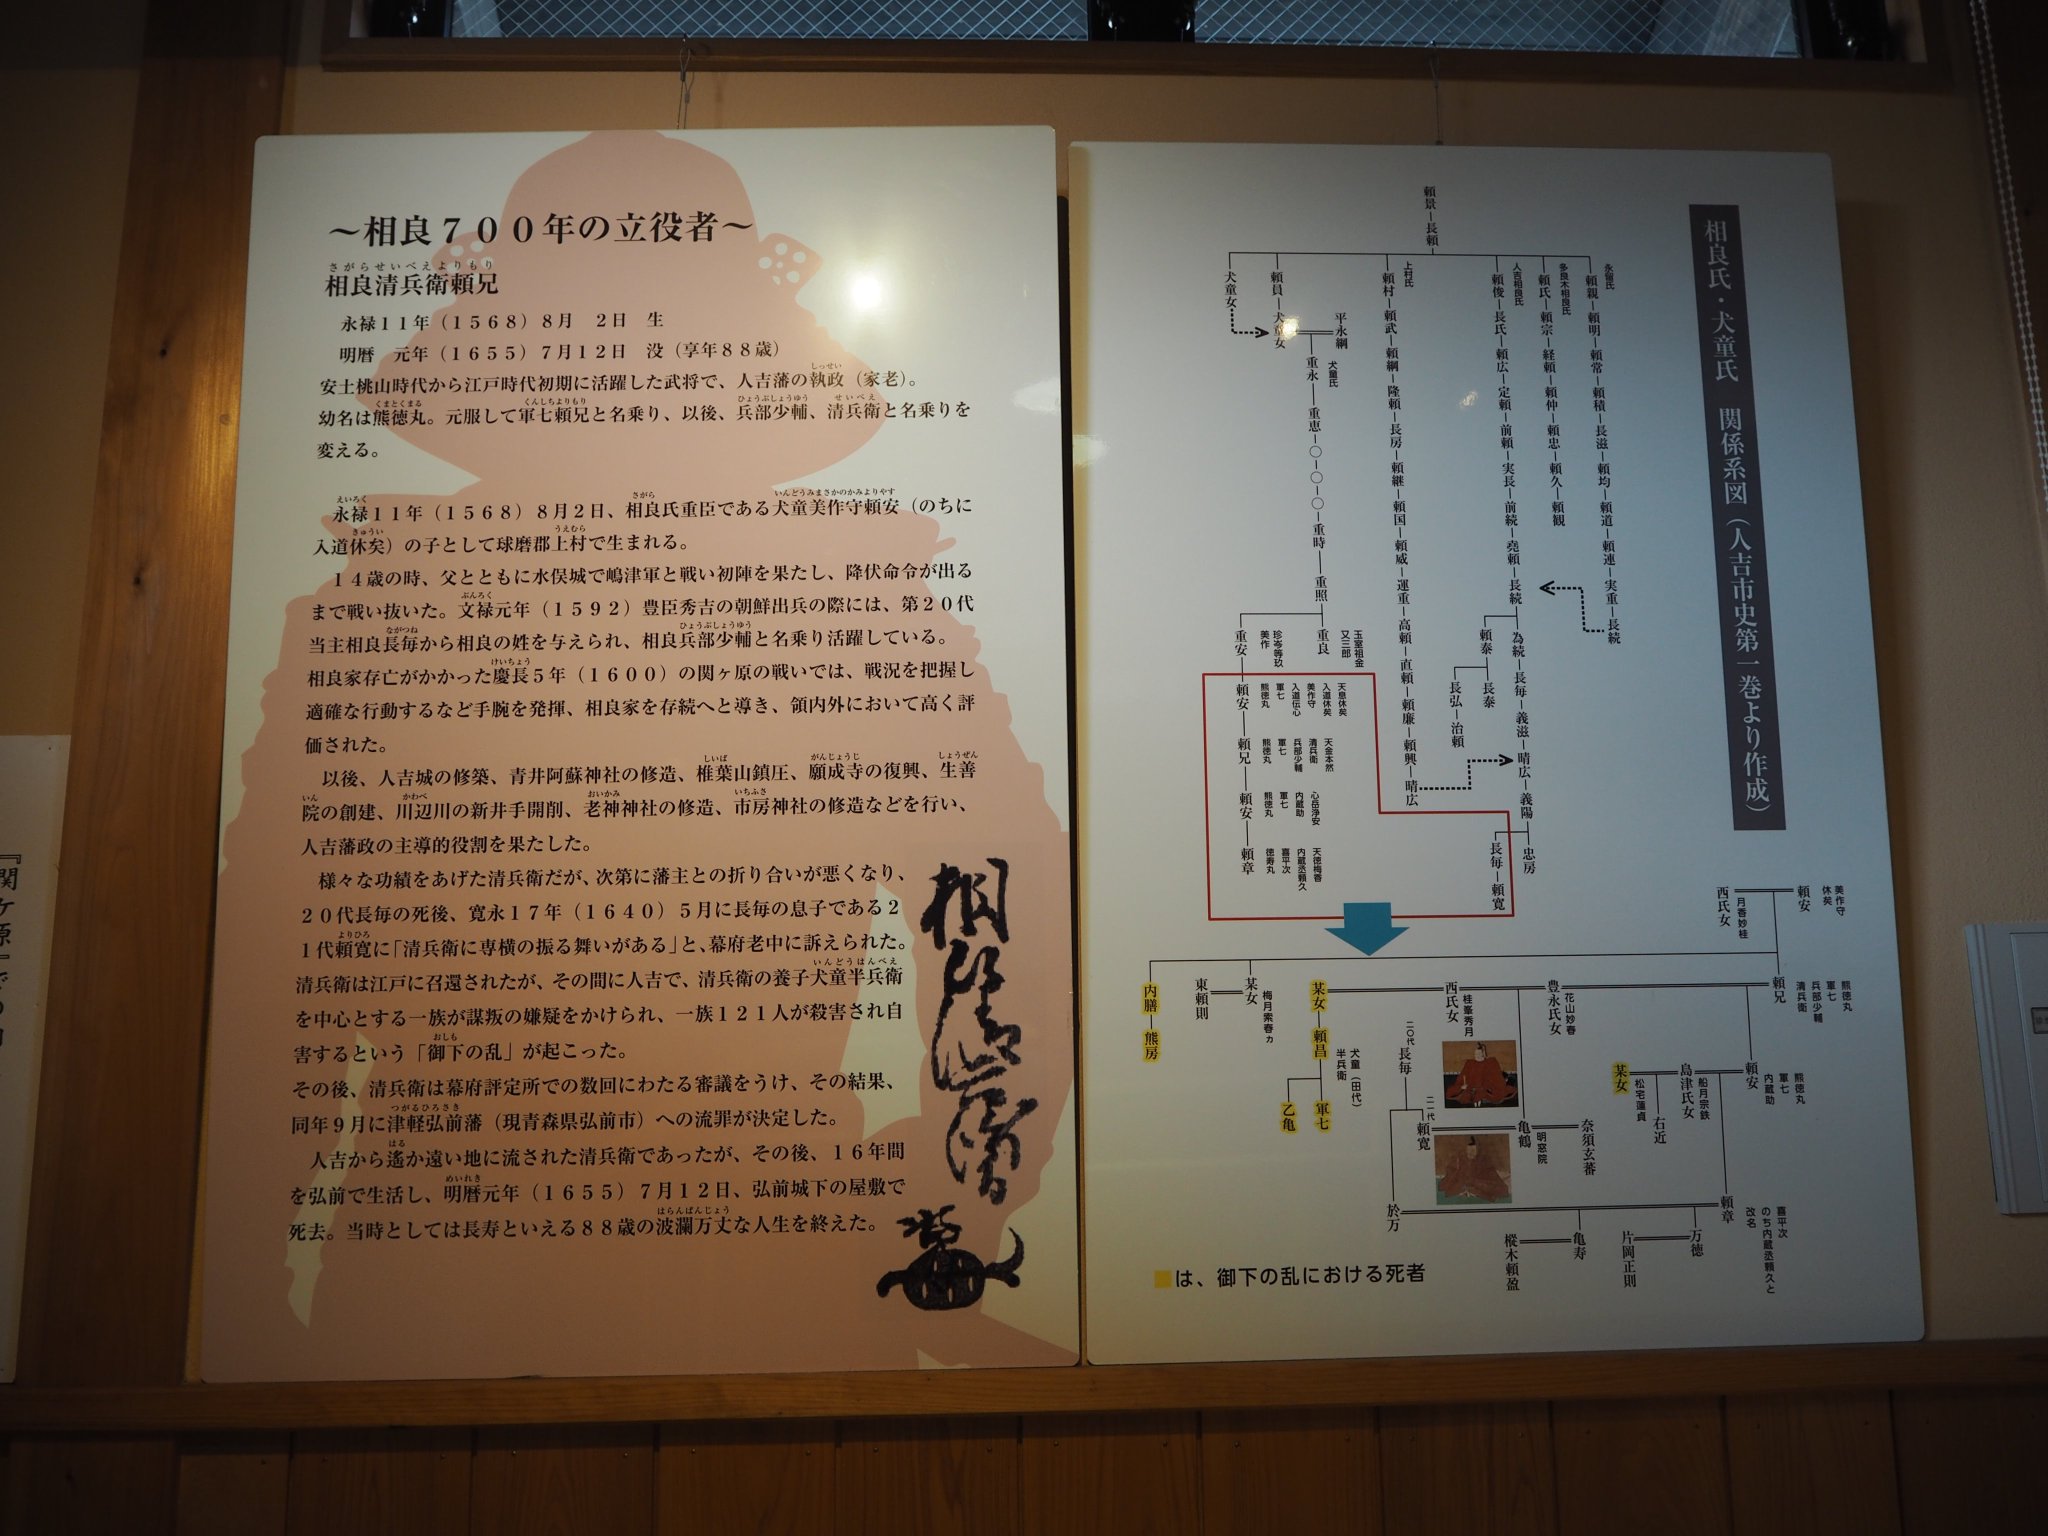 ～相良７００年の立役者～
さがらせいべえよりもり
相良清兵衛頼兄
永禄１１年（１５６８）８月　２日　生
明暦　元年（１６５５）７月１２日　没（享年８８歳）
しっせい
安土桃山時代から江戸時代初期に活躍した武将で、人吉藩の執政（家老）。
くまとくまる　くんしちよりもり　ひょうぶしょうゆう　せいべえ
幼名は熊徳丸。元服して軍七頼兄と名乗り、以後、兵部少輔、清兵衛と名乗りを
変える。
えいろく　さがら　いんどうみまさかのかみよりやす
永禄１１年（１５６８）８月２日、相良氏重臣である犬童美作守頼安（のちに
きゅうい　うえむら
入道休矣）の子として球磨郡上村で生まれる。
１４歳の時、父とともに水俣城で嶋津軍と戦い初陣を果たし、降伏命令が出る
ぶんろく
まで戦い抜いた。文禄元年（１５９２）豊臣秀吉の朝鮮出兵の際には、第２０代
ながつね　ひょうぶしょうゆう
当主相良長毎から相良の姓を与えられ、相良兵部少輔と名乗り活躍している。
けいちょう
相良家存亡がかかった慶長５年（１６００）の関ヶ原の戦いでは、戦況を把握し
適確な行動するなど手腕を発揮、相良家を存続へと導き、領内外において高く評
価された。
しいば　がんじょうじ　しょうぜん
以後、人吉城の修築、青井阿蘇神社の修造、椎葉山鎮圧、願成寺の復興、生善
いん　かわべ　おいかみ　いちふさ
院の創建、川辺川の新井手開削、老神神社の修造、市房神社の修造などを行い、
人吉藩政の主導的役割を果たした。
様々な功績をあげた清兵衛だが、次第に藩主との折り合いが悪くなり、
２０代長毎の死後、寛永１７年（１６４０）５月に長毎の息子である２
よりひろ
１代頼寛に「清兵衛に専横の振る舞いがある」と、幕府老中に訴えられた。
いんどうはんべえ
清兵衛は江戸に召還されたが、その間に人吉で、清兵衛の養子犬童半兵衛
を中心とする一族が謀叛の嫌疑をかけられ、一族１２１人が殺害され自
おしも
害するという「御下の乱」が起こった。
その後、清兵衛は幕府評定所での数回にわたる審議をうけ、その結果、
つがるひろさき
同年９月に津軽弘前藩（現青森県弘前市）への流罪が決定した。
はる
人吉から遙か遠い地に流された清兵衛であったが、その後、１６年間
めいれき
を弘前で生活し、明暦元年（１６５５）７月１２日、弘前城下の屋敷で
はらんばんじょう
死去。当時としては長寿といえる８８歳の波瀾万丈な人生を終えた。
相良清兵衛
相良氏・犬童氏　関係系図（人吉市史第一巻より作成）
頼景―長頼
永留氏
頼親―頼明―頼常―頼積―長滋―頼均―頼道―頼連―実重―長続
多良木相良氏
頼氏―頼宗―経頼―頼仲―頼忠―頼久―頼観
人吉相良氏
頼俊―長氏―頼広―定頼―前頼―実長―前続―堯頼―長続
為続―長毎―義滋―晴広―義陽
忠房
長毎―頼寛
頼泰
長泰
長弘―治頼
上村氏
頼村―頼武―頼綱―隆頼―長房―頼継―頼国―頼威―運重―高頼―直頼―頼廉―頼興―晴広
頼員―犬童女
犬童女
平永綱
犬童氏
重永―重恵―〇―〇―〇―重時―重照
玉室祖金
又三郎
重良
珍岑等玖
美作
重安
天息休矣
入道休矣
入道伝心
美作守
軍七
熊徳丸
頼安
天金本然
清兵衛
兵部少輔
軍七
熊徳丸
頼兄
心岳浄安
内蔵助
軍七
熊徳丸
頼安
天徳梅香
内蔵丞頼久
喜平次
徳寿丸
頼章
美作守
休矣
頼安
月香妙桂
西氏女
熊徳丸
軍七
兵部少輔
清兵衛
頼兄
花山妙春
豊永氏女
桂峯秀月
西氏女
某女―頼昌
犬童（田代）
半兵衛
軍七
乙亀
梅月索春カ
某女
東頼則
内膳―熊房
熊徳丸
軍七
内蔵助
頼安
船月宗鉄
島津氏女
右近
松宅蓮貞
某女
二〇代
長毎
二一代
頼寛
亀鶴
明窓院
奈須玄蕃
喜平次
のち内蔵丞頼久と
改名
頼章
於万
万徳
片岡正則
亀寿
樅木頼盈
は、御下の乱における死者